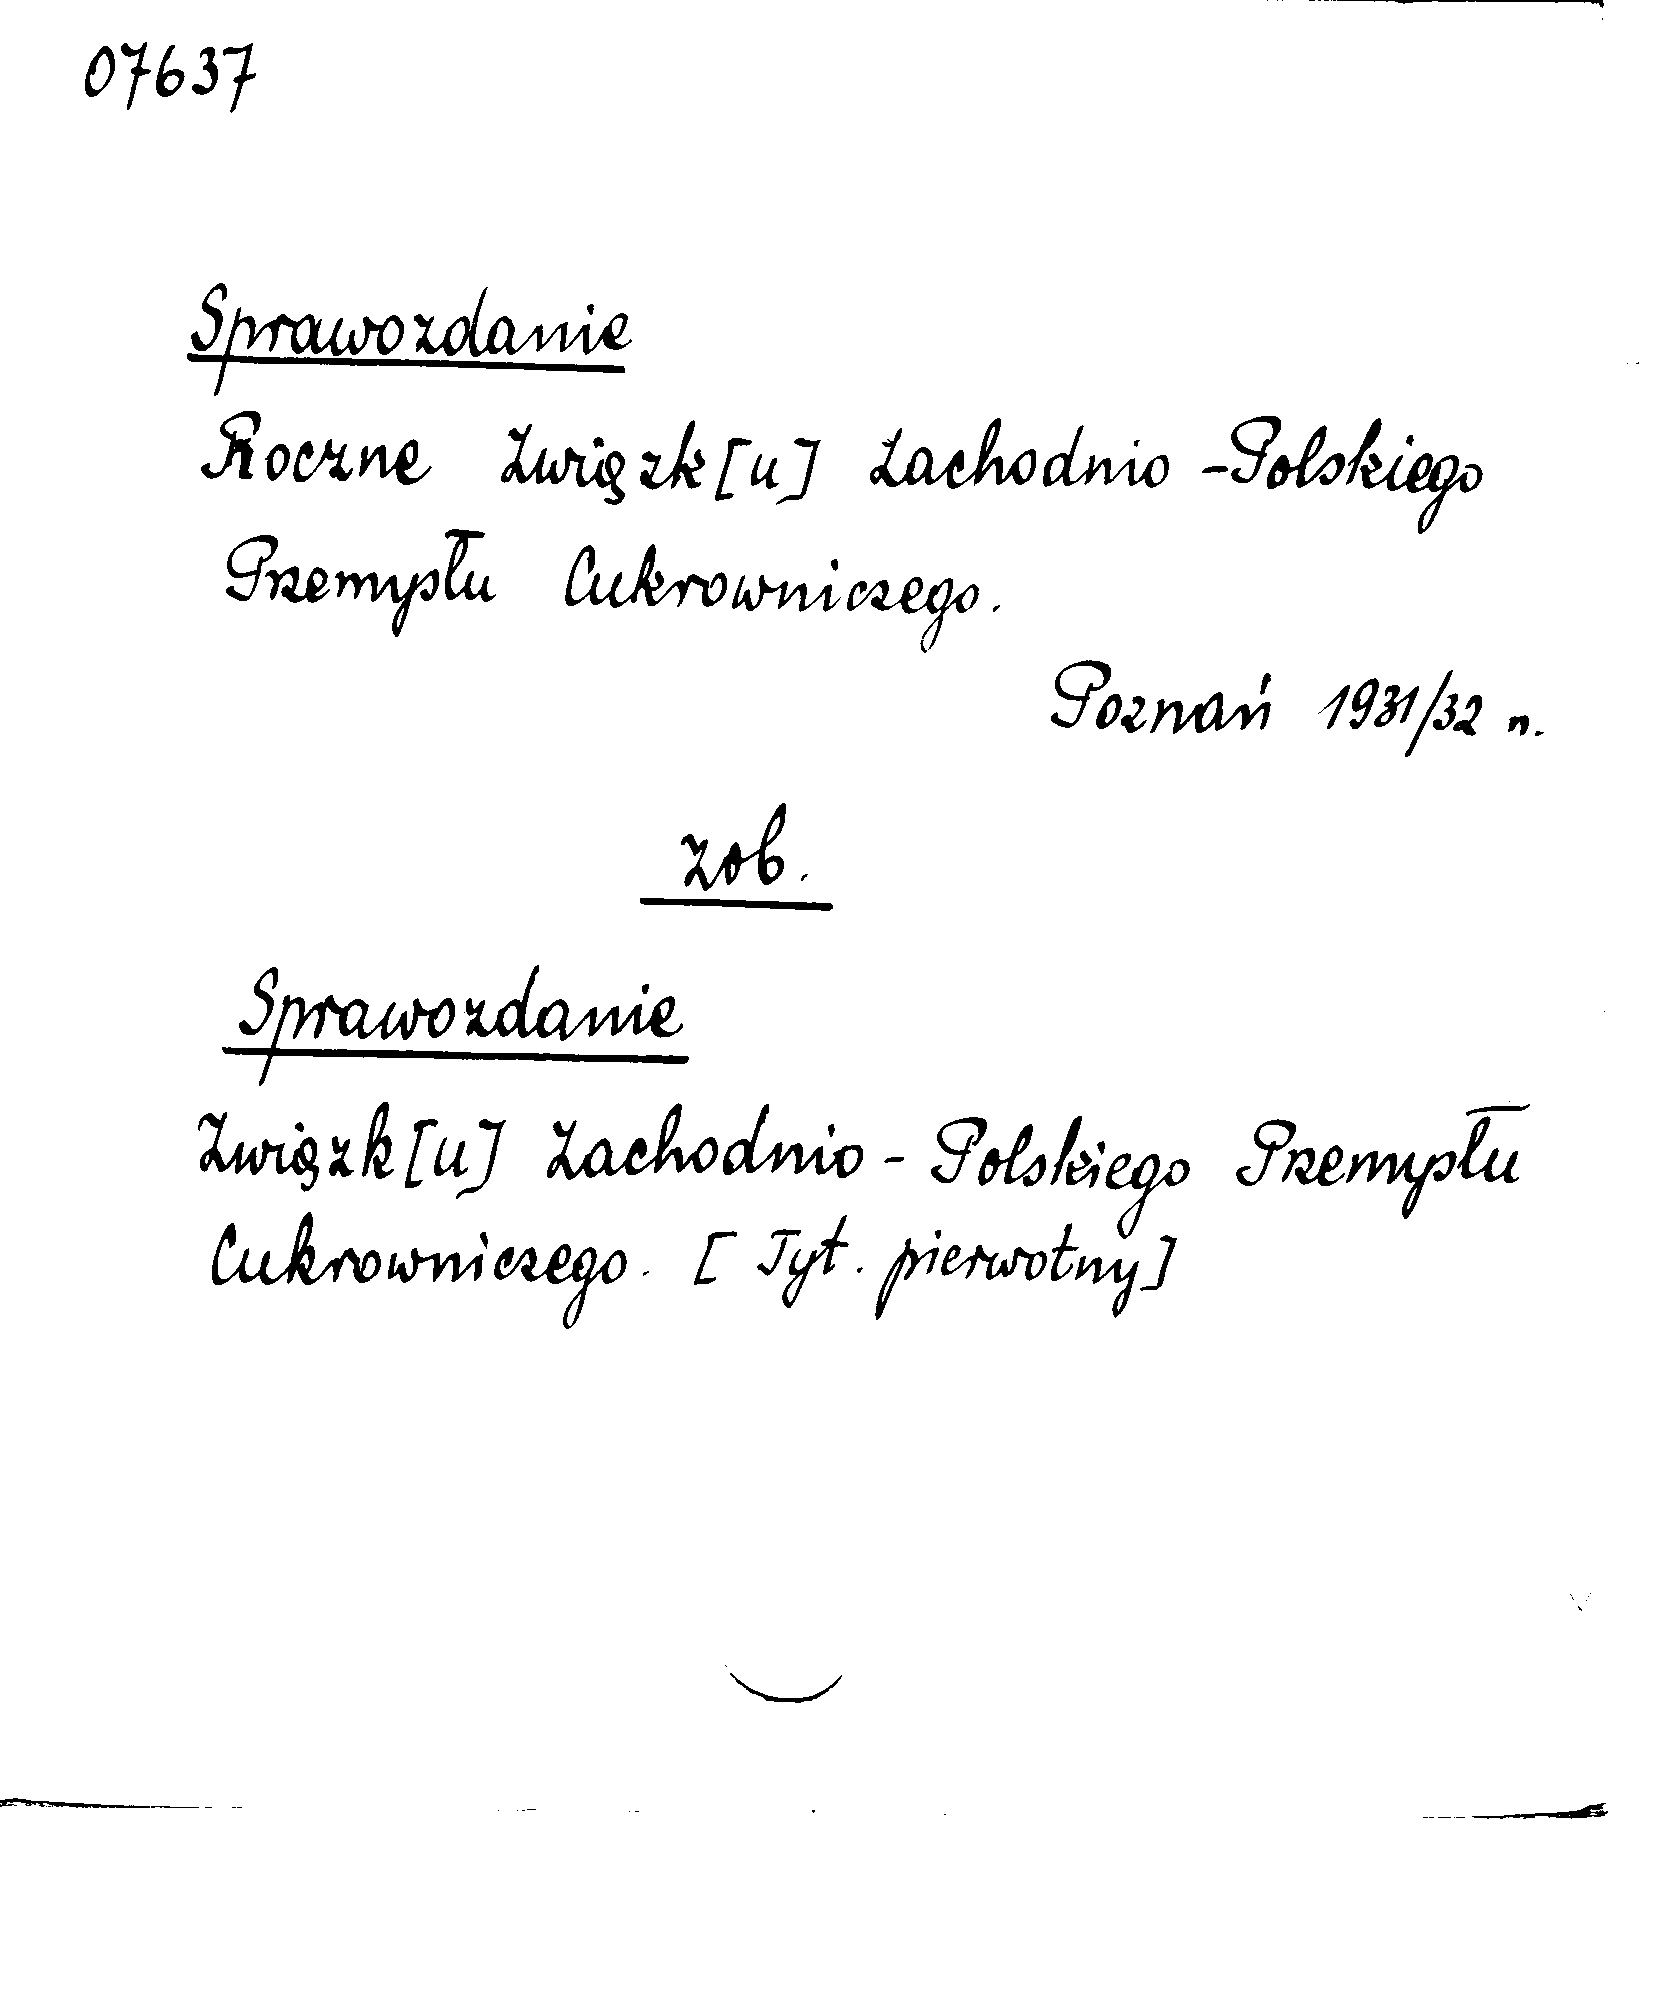 07637
Sprawozdanie
Roczne Związk[u] Zachodnio-Polskiego
Przemysłu Cukrowniczego.
Poznań 1931/32 n.
zob.
Sprawozdanie
Związk[u] Zachodnio-Polskiego Przemysłu
Cukrowniczego. [Tyt. pierwotny]